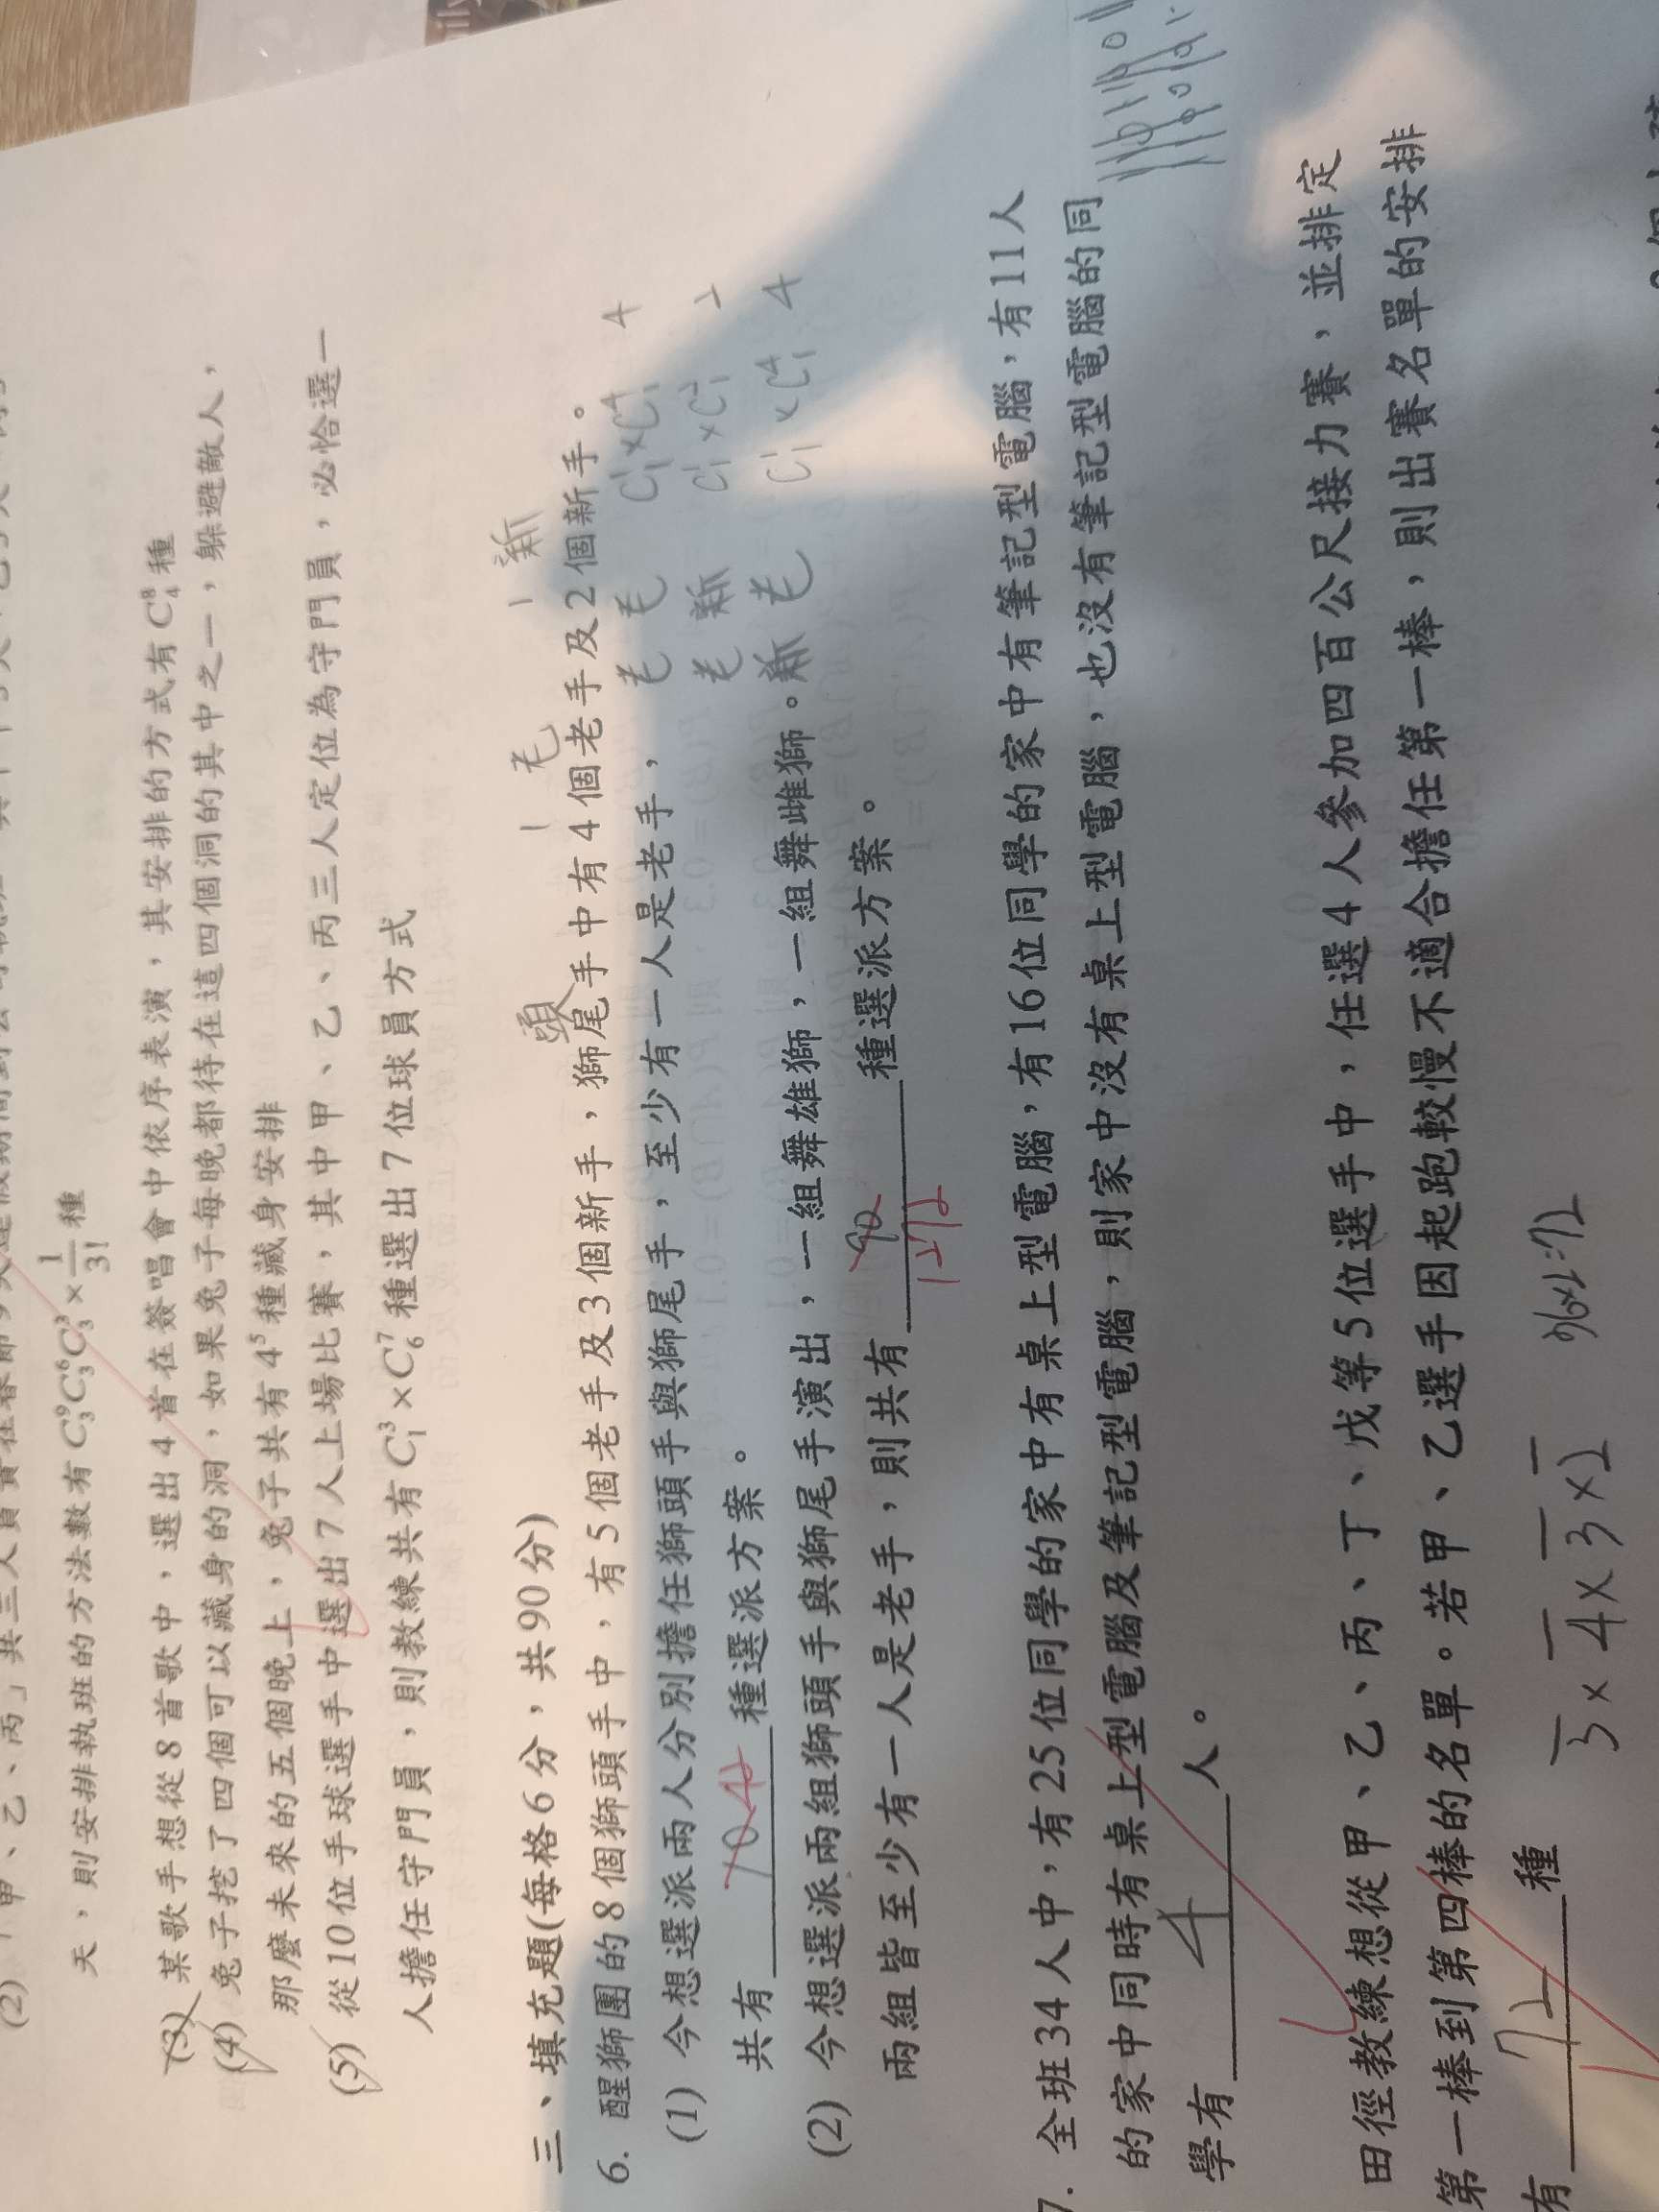 天，則安排執班的方法數有 C⁹₃C⁶₃C³₃ × 1/3! 種
(3) 某歌手想從 8 首歌中，選出 4 首在簽唱會中依序表演，其安排的方式有 C⁸₄ 種
(4) 兔子挖了四個可以藏身的洞，如果兔子每晚都待在這四個洞的其中之一，躲避敵人，
那麼未來的五個晚上，兔子共有 4⁵ 種藏身安排
(5) 從 10 位手球選手中選出 7 人上場比賽，其中甲、乙、丙三人定位為守門員，必恰選一
人擔任守門員，則教練共有 C³₁ × C⁷₆ 種選出 7 位球員方式
頭 1 老 1 新
三、填充題(每格 6 分，共 90 分)
6. 醒獅團的 8 個獅頭手中，有 5 個老手及 3 個新手，獅尾手中有 4 個老手及 2 個新手。
(1) 今想選派兩人分別擔任獅頭手與獅尾手，至少有一人是老手，
老 老 C¹₁×C⁴₁ 4
共有 42 種選派方案。
老 新 C¹₁×C²₁ 2
新 老 C¹₁×C⁴₁ 4
(2) 今想選派兩組獅頭手與獅尾手演出，一組舞雄獅，一組舞雌獅。
兩組皆至少有一人是老手，則共有 90 種選派方案。
1272
7. 全班 34 人中，有 25 位同學的家中有桌上型電腦，有 16 位同學的家中有筆記型電腦，有 11 人
的家中同時有桌上型電腦及筆記型電腦，則家中沒有桌上型電腦，也沒有筆記型電腦的同
學有 4 人。
田徑教練想從甲、乙、丙、丁、戊等 5 位選手中，任選 4 人參加四百公尺接力賽，並排定
第一棒到第四棒的名單。若甲、乙選手因起跑較慢不適合擔任第一棒，則出賽名單的安排
有 72 種
3×4×3×2
36×2=72